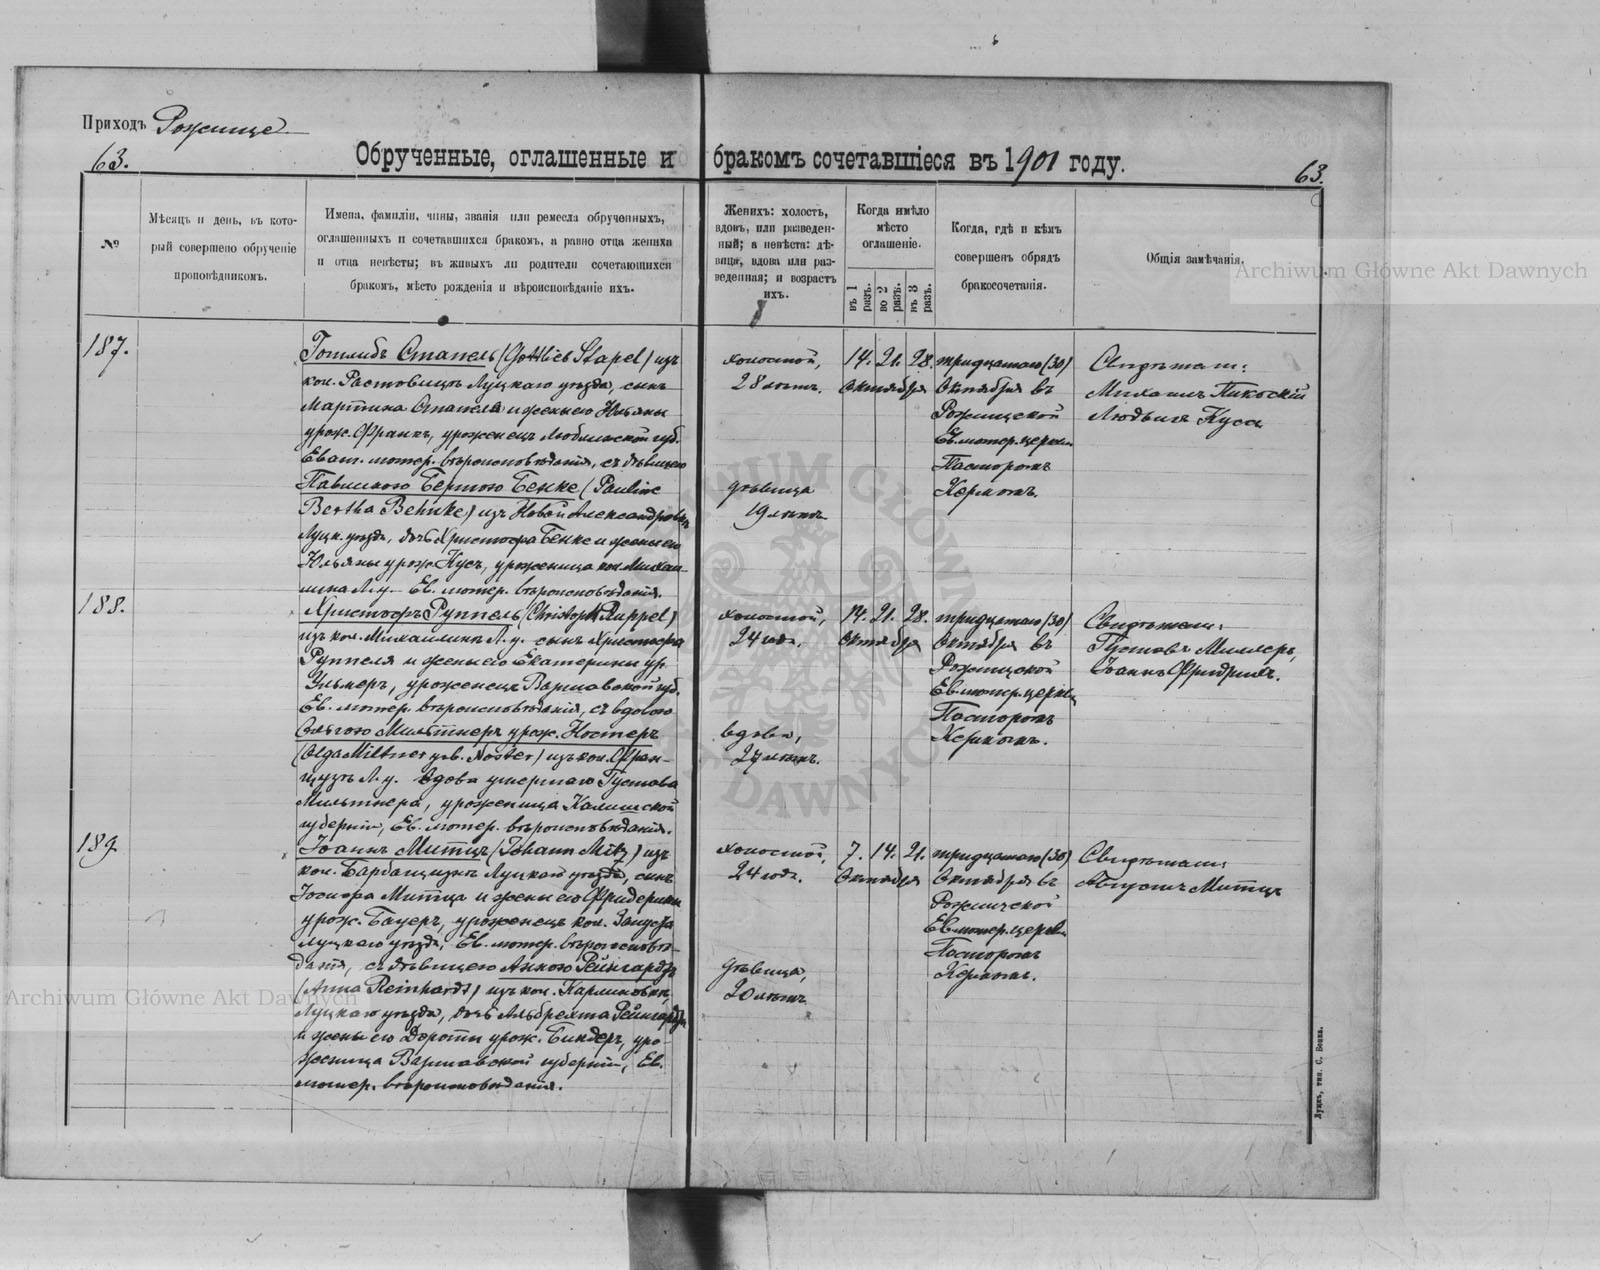 Приходъ Рожище
63.
Обрученные, оглашенные и бракомъ сочетавшіеся въ 1901 году.
63.
№
Мѣсяцъ и день, въ который совершено обрученіе проповѣдникомъ.
Имена, фамиліи, чины, званія или ремесла обрученныхъ,
оглашенныхъ и сочетавшихся бракомъ, а равно отца жениха
и отца невѣсты; въ живыхъ ли родители сочетающихся
бракомъ, мѣсто рожденія и вѣроисповѣданіе ихъ.
Женихъ: холостъ,
вдовъ, или разведенный; а невѣста: дѣвица, вдова или разведенная; и возрастъ
ихъ.
Когда имѣло
мѣсто
оглашеніе.
въ 1 разъ.
во 2 разъ.
въ 3 разъ.
Когда, гдѣ и кѣмъ
совершенъ обрядъ
бракосочетанія.
Общія замѣчанія.
Archiwum Główne Akt Dawnych
187.
Готлибъ Стапель (Gottlieb Stapel) изъ
кол. Растовищъ Луцкаго уѣзда, сынъ
Мартина Стапеля и жены его Юльяны
урож. Франкъ, уроженецъ Люблинской губ.
Еван. лютер. вѣроисповѣданія, съ дѣвицею
Павлиною Бертою Бенке (Pauline
Bertha Behnke) изъ Новой Александровки
Луцк. уѣзда, дочь Христофа Бенке и жены его
Юльяны урож. Кусъ, уроженица кол. Михалина Л. у. Ев. лютер. вѣроисповѣданія.
холостой,
28 лѣтъ.
дѣвица
19 лѣтъ
14. 21. 28.
Октября
тридцатаго (30)
Октября въ
Рожищской
Ев. лютер. церкви
Пасторомъ
Керномъ.
Свидѣтели:
Михаилъ
Людвигъ Кусъ
188.
Христофъ Руппель (Christoph Ruppel)
изъ кол. Михайлинъ Л. у. сынъ Христофа
Руппеля и жены его Екатерины ур.
Ульмеръ, уроженецъ Варшавской губ.
Ев. лютер. вѣроисповѣданія, съ вдовою
Ольгою Мильтнеръ урож. Ностеръ
(Olga Miltner geb. Noster) изъ кол. Французъ Л. у. вдова умершаго Густава
Мильтнера, уроженица Калишской
губерніи, Ев. лютер. вѣроисповѣданія.
холостой,
24 года.
вдова,
27 лѣтъ.
14. 21. 28.
Октября
тридцатаго (30)
Октября въ
Рожищской
Ев. лютер. церкви
Пасторомъ
Керномъ.
Свидѣтели:
Густавъ Миллеръ,
Іоаннъ Фридрихъ.
189.
Іоаннъ Митцъ (Johann Mitz) изъ
кол. Барбащизнъ Луцкаго уѣзда, сынъ
Іосифа Митца и жены его Фридерики
урож. Бауеръ, уроженецъ кол. Запуста
Луцкаго уѣзда, Ев. лютер. вѣроисповѣданія, съ дѣвицею Анною Рейнгардтъ
(Anna Reinhardt) изъ кол. Карлиновки,
Луцкаго уѣзда, дочь Альбрехта Рейнгардта
и жены его Доротты урож. Биндеръ, уроженица Варшавской губерніи, Ев.
лютер. вѣроисповѣданія.
холостой,
24 года.
дѣвица,
20 лѣтъ
7. 14. 21.
Октября
тридцатаго (30)
Октября въ
Рожищской
Ев. лютер. церкви
Пасторомъ
Керномъ.
Свидѣтели:
Августъ Митцъ
Archiwum Główne Akt Dawnych
Луцкъ, тип. С. Бонка.